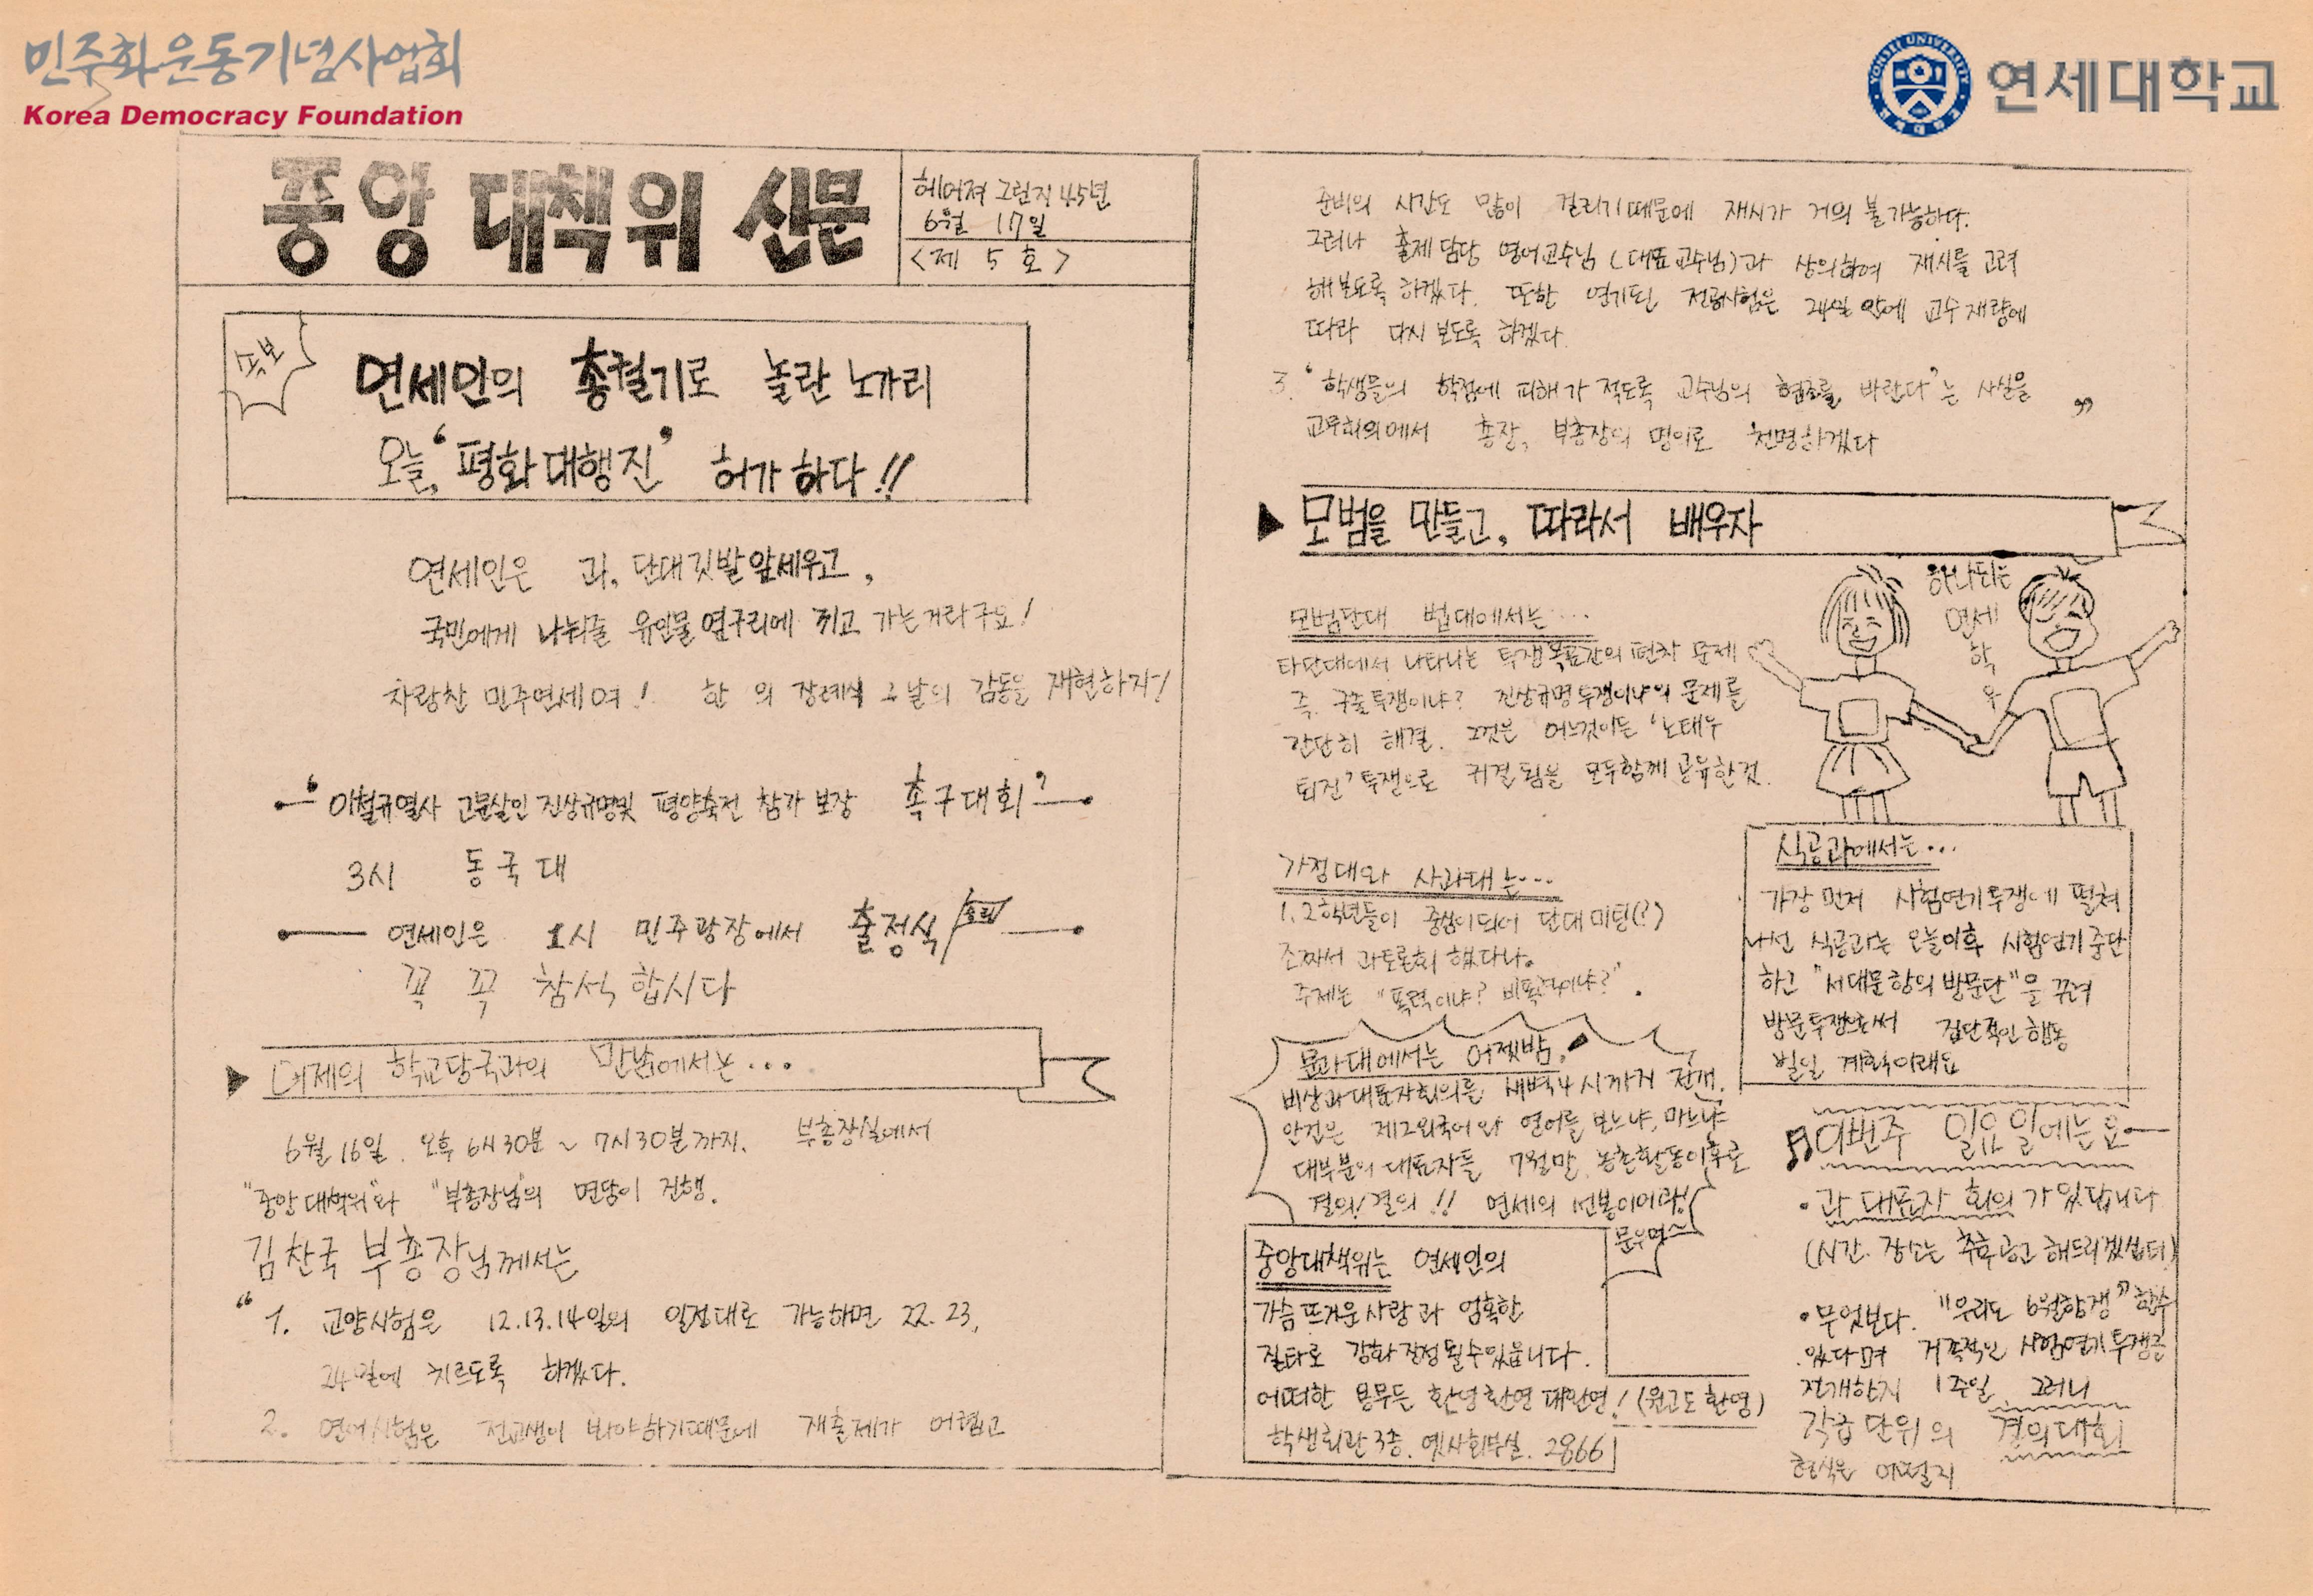 민주화운동기념사업회
Korea Democracy Foundation
YONSEI UNIVERSITY
연세대학교
중앙 대책위 신문
헤어져 그런지 45년
6월 17일
<제 5 호>
속보
연세인의 총궐기로 놀란 노가리
오늘, '평화대행진' 허가하다!!
연세인은 과, 단대깃발 앞세우고,
국민에게 나눠줄 유인물 옆구리에 끼고 가는거라구요!
자랑찬 민주연세여! 한 의 장례식 그날의 감동을 재현하자!
'이철규열사 고문살인 진상규명및 평양축전 참가 보장 촉구대회'
3시 동국대
연세인은 1시 민주광장에서 출정식
꼭 꼭 참석합시다
어제의 학교당국과의 만남에서는...
6월 16일. 오후 6시30분 ~ 7시30분까지. 부총장실에서
"중앙대책위"와 "부총장님"의 면담이 진행.
김찬국 부총장님께서는
" 1. 교양시험은 12.13.14일의 일정대로 가능하면 22.23,
24일에 치르도록 하겠다.
2. 영어시험은 전교생이 봐야하기때문에 재출제가 어렵고
준비의 시간도 많이 걸리기때문에 재시가 거의 불가능하다.
그러나 출제담당 영어교수님(대표교수님)과 상의하여 재시를 고려
해보도록 하겠다. 또한 연기된 전공시험은 24일 안에 교수재량에
따라 다시 보도록 하겠다.
3. '학생들의 학점에 피해가 적도록 교수님의 협조를 바란다'는 사실을
교무회의에서 총장, 부총장의 명의로 천명하겠다 "
모범을 만들고, 따라서 배우자
하나되는
연세
학
우
모범단대 법대에서는...
타단대에서 나타나는 투쟁목표간의 편차 문제
즉, 구출투쟁이냐? 진상규명투쟁이냐의 문제를
간단히 해결. 그것은 어느것이든 '노태우
퇴진' 투쟁으로 귀결됨을 모두함께 공유한것.
가정대와 사과대는...
1.2학년들이 중심이되어 단대미팅(?)
조짜서 과토론회 했다나.
주제는 "폭력이냐? 비폭력이냐?".
식공과에서는...
가장 먼저 시험연기투쟁에 떨쳐
나선 식공과는 오늘이후 시험연기중단
하고 "서대문항의방문단"을 꾸려
방문투쟁으로써 집단적인 행동
벌일 계획이래요
문과대에서는 어젯밤,
비상과대표자회의를 새벽4시까지 전개.
안건은 제2외국어와 영어를 보느냐, 마느냐
대부분의 대표자들 7월말 농촌활동이후로
결의! 결의!! 연세의 선봉이어라!
중앙대책위는 연세인의
가슴뜨거운 사랑과 엄혹한
질타로 강화 될수있읍니다.
어떠한 용무든 환영환영 대환영! (원고도 환영)
학생회관 3층. 옛사회부실. 2866
이번주 일요일에는요
• 과 대표자 회의가 있답니다
(시간. 장소는 추후공고 해드리겠습니다)
• 무엇보다. "우리도 6월항쟁" 할수
있다며 거족적인 시험연기투쟁을
전개한지 1주일. 그러나
각급 단위의 결의대회
형식은 어떨지